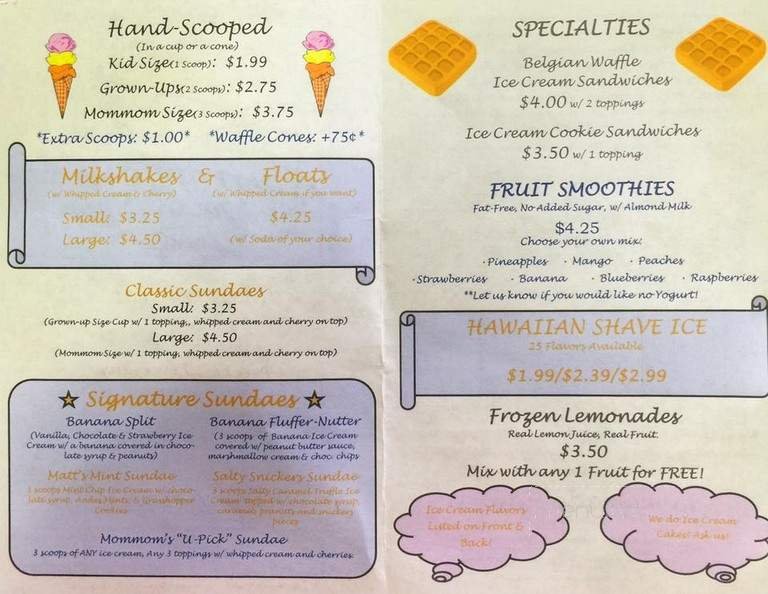 Hand-Scooped
(In a cup or a cone)
Kid Size(1 Scoop): $1.99
Grown-Ups(2 Scoops): $2.75
Mommom Size(3 Scoops): $3.75
*Extra Scoops: $1.00* *Waffle Cones: +75¢*
Milkshakes & Floats
(w/ Whipped Cream & Cherry) (w/ Whipped Cream if you want)
Small: $3.25 $4.25
Large: $4.50 (w/ Soda of your choice)
Classic Sundaes
Small: $3.25
(Grown-up Size Cup w/ 1 topping,, whipped cream and cherry on top)
Large: $4.50
(Mommom Size w/ 1 topping, whipped cream and cherry on top)
Signature Sundaes
Banana Split
(Vanilla, Chocolate & Strawberry Ice
Cream w/ a banana covered in choco-
late syrup & peanuts)
Banana Fluffer-Nutter
(3 scoops of Banana Ice Cream
covered w/ peanut butter sauce,
marshmallow cream & choc. chips
Matt's Mint Sundae
3 scoops Mint Chip Ice Cream w/ choco-
late syrup, Andes Mints, & Grasshopper
Cookies
Salty Snickers Sundae
3 scoops Salty Caramel Truffle Ice
Cream topped w/ chocolate syrup,
caramel, peanuts and snickers
pieces
Mommom's "U-Pick" Sundae
3 scoops of ANY ice cream, Any 3 toppings w/ whipped cream and cherries.
SPECIALTIES
Belgian Waffle
Ice Cream Sandwiches
$4.00 w/ 2 toppings
Ice Cream Cookie Sandwiches
$3.50 w/ 1 topping
FRUIT SMOOTHIES
Fat-Free, No Added Sugar, w/ Almond Milk
$4.25
Choose your own mix:
· Pineapples · Mango · Peaches
· Strawberries · Banana · Blueberries · Raspberries
**Let us know if you would like no Yogurt!
HAWAIIAN SHAVE ICE
25 Flavors Available
$1.99/$2.39/$2.99
Frozen Lemonades
Real Lemon Juice, Real Fruit.
$3.50
Mix with any 1 Fruit for FREE!
Ice Cream Flavors
Listed on Front &
Back!
We do Ice Cream
Cakes! Ask us!